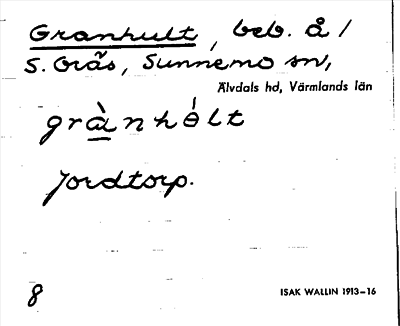 Granhult, beb. å /
S. Grås, Sunnemo sn,
Älvdals hd, Värmlands län
grànhólt
Jordtorp.
8
ISAK WALLIN 1913–16